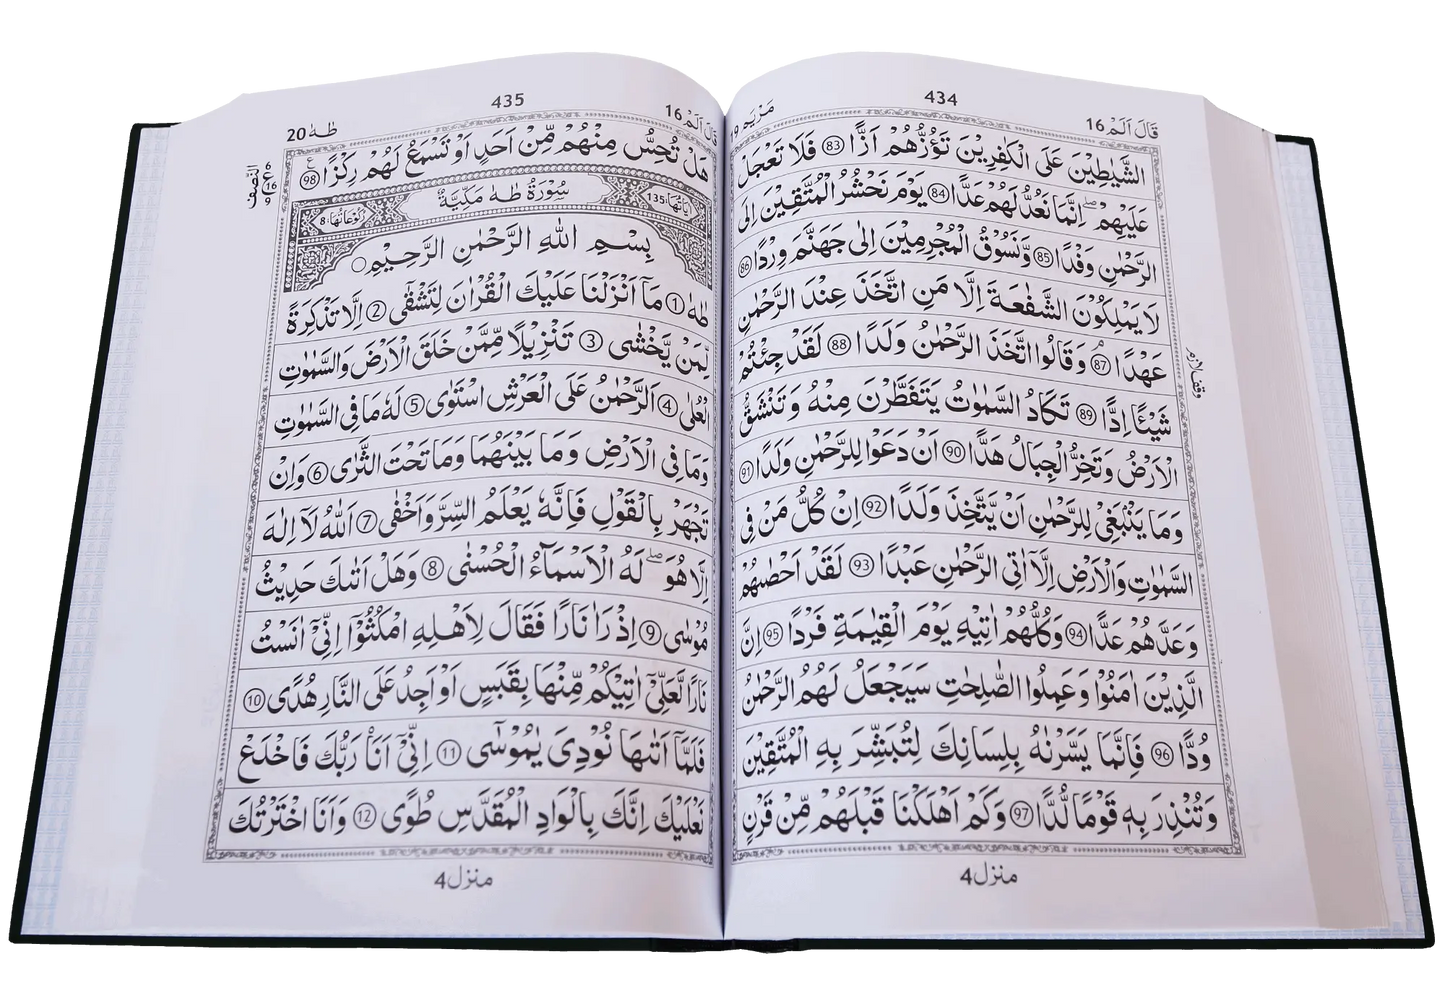 434
قَالَ اَلَمْ 16
مَرْيَم 19
الشَّيٰطِيْنَ عَلَى الْكٰفِرِيْنَ تَؤُزُّهُمْ اَزًّا 83 فَلَا تَعْجَلْ
عَلَيْهِمْ ؕ اِنَّمَا نَعُدُّ لَهُمْ عَدًّا 84 يَوْمَ نَحْشُرُ الْمُتَّقِيْنَ اِلَى
الرَّحْمٰنِ وَفْدًا 85 وَّنَسُوْقُ الْمُجْرِمِيْنَ اِلٰى جَهَنَّمَ وِرْدًا 86
لَا يَمْلِكُوْنَ الشَّفٰعَةَ اِلَّا مَنِ اتَّخَذَ عِنْدَ الرَّحْمٰنِ
عَهْدًا 87 وَقَالُوا اتَّخَذَ الرَّحْمٰنُ وَلَدًا 88 لَقَدْ جِئْتُمْ
شَيْئًا اِدًّا 89 تَكَادُ السَّمٰوٰتُ يَتَفَطَّرْنَ مِنْهُ وَتَنْشَقُّ
الْاَرْضُ وَتَخِرُّ الْجِبَالُ هَدًّا 90 اَنْ دَعَوْا لِلرَّحْمٰنِ وَلَدًا 91
وَمَا يَنْۢبَغِيْ لِلرَّحْمٰنِ اَنْ يَّتَّخِذَ وَلَدًا 92 اِنْ كُلُّ مَنْ فِى
السَّمٰوٰتِ وَالْاَرْضِ اِلَّاۤ اٰتِى الرَّحْمٰنِ عَبْدًا 93 لَقَدْ اَحْصٰىهُمْ
وَعَدَّهُمْ عَدًّا 94 وَكُلُّهُمْ اٰتِيْهِ يَوْمَ الْقِيٰمَةِ فَرْدًا 95 اِنَّ
الَّذِيْنَ اٰمَنُوْا وَعَمِلُوا الصّٰلِحٰتِ سَيَجْعَلُ لَهُمُ الرَّحْمٰنُ
وُدًّا 96 فَاِنَّمَا يَسَّرْنٰهُ بِلِسَانِكَ لِتُبَشِّرَ بِهِ الْمُتَّقِيْنَ
وَتُنْذِرَ بِهٖ قَوْمًا لُّدًّا 97 وَكَمْ اَهْلَكْنَا قَبْلَهُمْ مِّنْ قَرْنٍ
منزل 4
435
قَالَ اَلَمْ 16
طٰهٰ 20
هَلْ تُحِسُّ مِنْهُمْ مِّنْ اَحَدٍ اَوْ تَسْمَعُ لَهُمْ رِكْزًا 98
اٰيَاتُهَا: 135
سُوْرَةُ طٰهٰ مَكِّيَّةٌ
رُكُوْعَاتُهَا: 8
بِسْمِ اللّٰهِ الرَّحْمٰنِ الرَّحِيْمِ
طٰهٰ 1 مَاۤ اَنْزَلْنَا عَلَيْكَ الْقُرْاٰنَ لِتَشْقٰٓى 2 اِلَّا تَذْكِرَةً
لِّمَنْ يَّخْشٰى 3 تَنْزِيْلًا مِّمَّنْ خَلَقَ الْاَرْضَ وَالسَّمٰوٰتِ
الْعُلٰى 4 اَلرَّحْمٰنُ عَلَى الْعَرْشِ اسْتَوٰى 5 لَهٗ مَا فِى السَّمٰوٰتِ
وَمَا فِى الْاَرْضِ وَمَا بَيْنَهُمَا وَمَا تَحْتَ الثَّرٰى 6 وَاِنْ
تَجْهَرْ بِالْقَوْلِ فَاِنَّهٗ يَعْلَمُ السِّرَّ وَاَخْفٰى 7 اَللّٰهُ لَاۤ اِلٰهَ
اِلَّا هُوَ ؕ لَهُ الْاَسْمَآءُ الْحُسْنٰى 8 وَهَلْ اَتٰىكَ حَدِيْثُ
مُوْسٰى 9 اِذْ رَاٰ نَارًا فَقَالَ لِاَهْلِهِ امْكُثُوْۤا اِنِّيْۤ اٰنَسْتُ
نَارًا لَّعَلِّيْۤ اٰتِيْكُمْ مِّنْهَا بِقَبَسٍ اَوْ اَجِدُ عَلَى النَّارِ هُدًى 10
فَلَمَّاۤ اَتٰىهَا نُوْدِيَ يٰمُوْسٰى 11 اِنِّيْۤ اَنَا رَبُّكَ فَاخْلَعْ
نَعْلَيْكَ اِنَّكَ بِالْوَادِ الْمُقَدَّسِ طُوًى 12 وَاَنَا اخْتَرْتُكَ
منزل 4